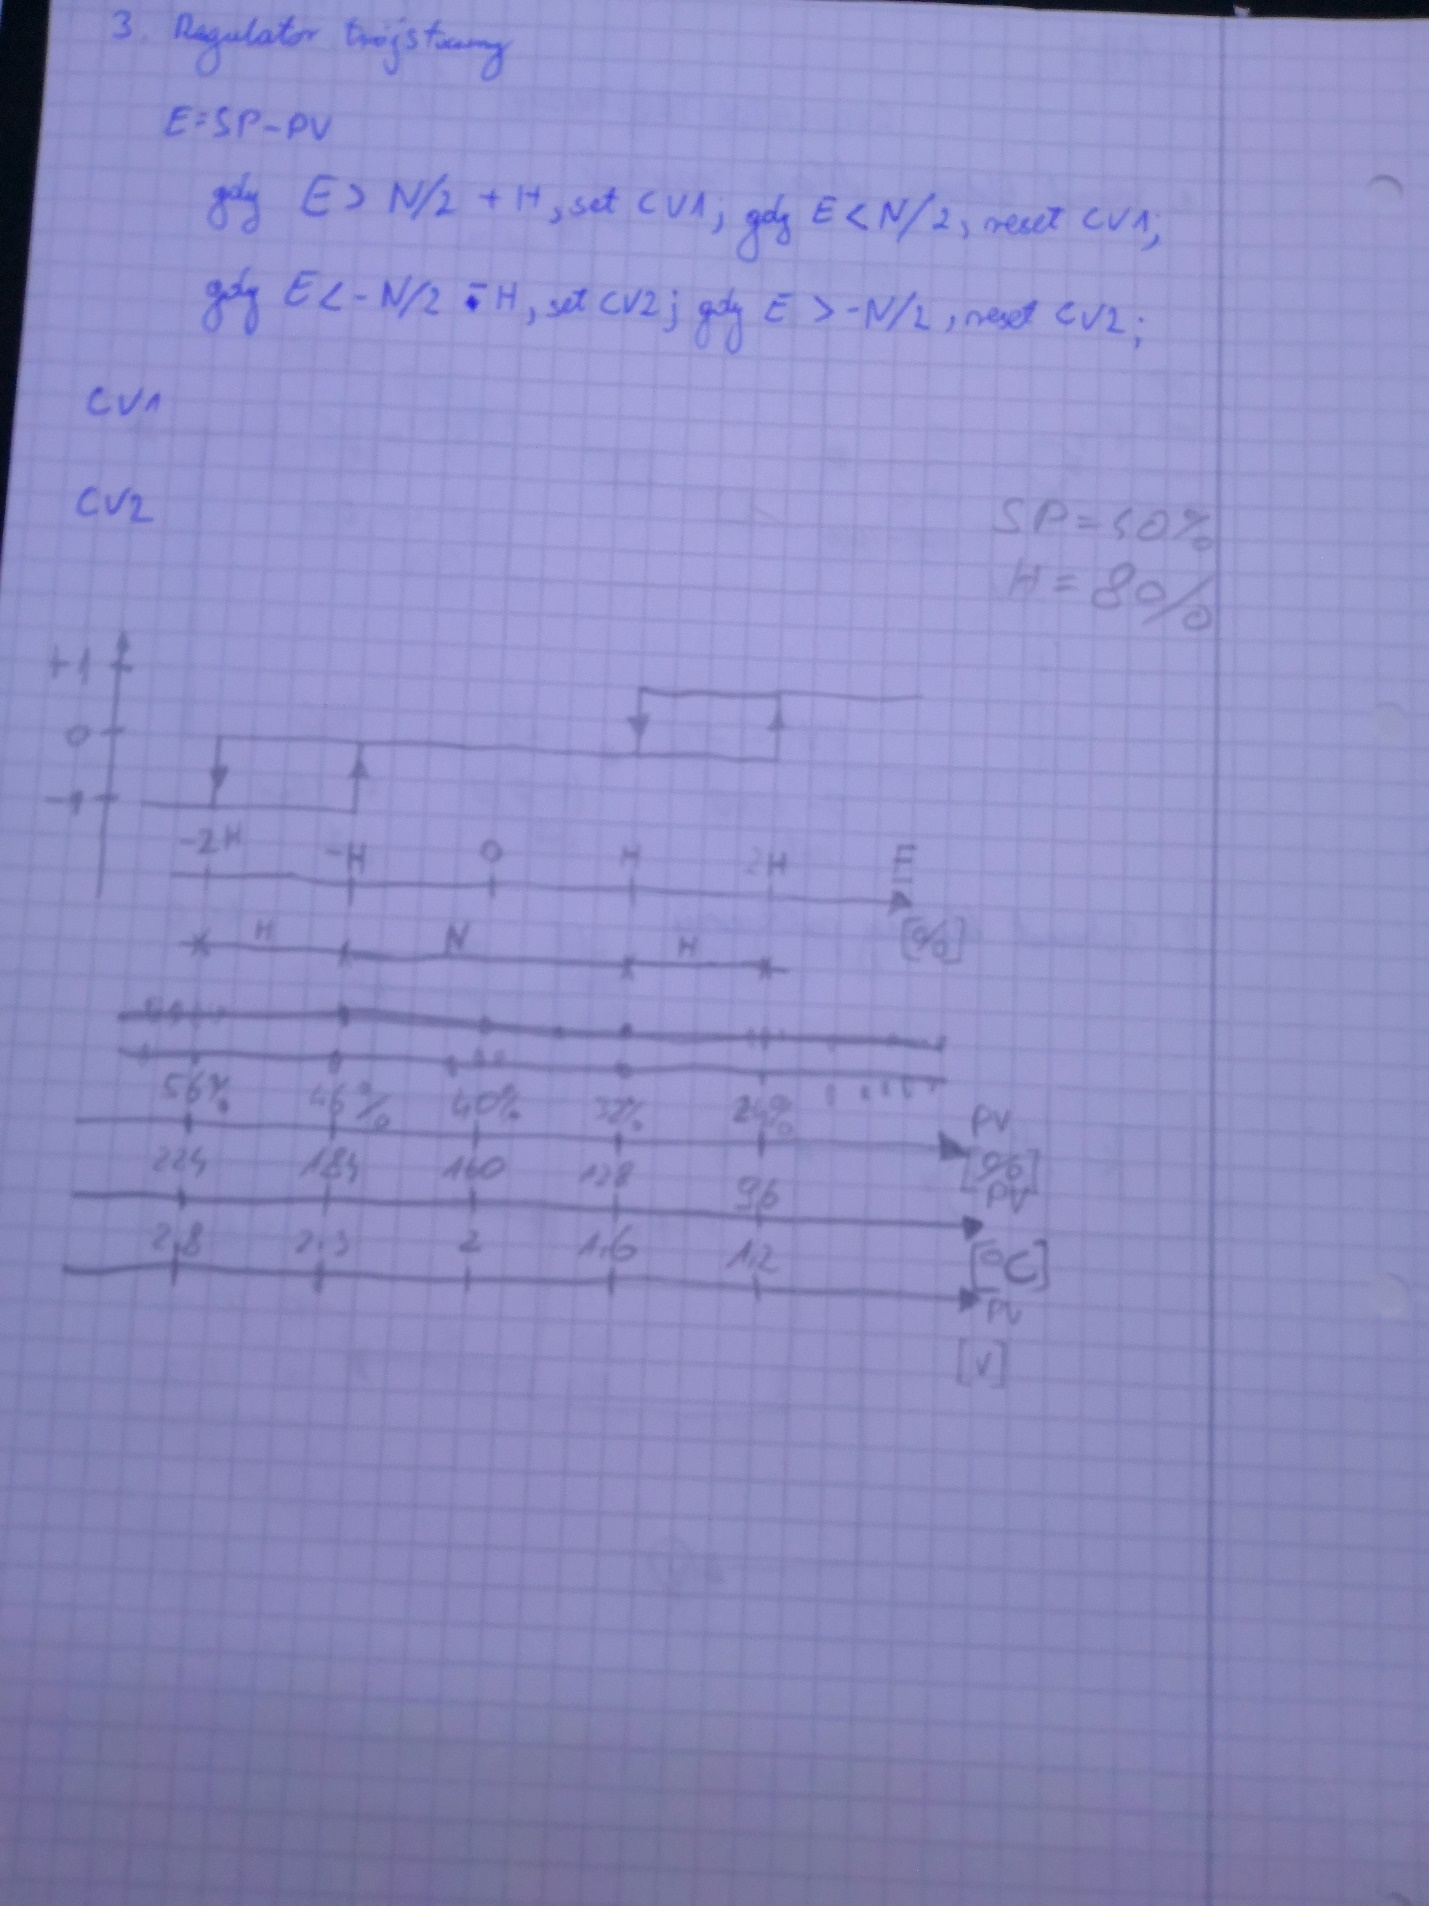 3. Regulator trójstawny
E=SP-PV
gdy E > N/2 + H, set CV1; gdy E < N/2, reset CV1;
gdy E < - N/2 - H, set CV2; gdy E > -N/2, reset CV2;
CV1
CV2
SP=40%
H=8%
+1
0
-1
-2H -H 0 H 2H E
[%]
H N H
56% 46% 40% 32% 24% PV
[%]
224 184 160 128 96 PV
[°C]
2,8 2,3 2 1,6 1,2 PV
[V]